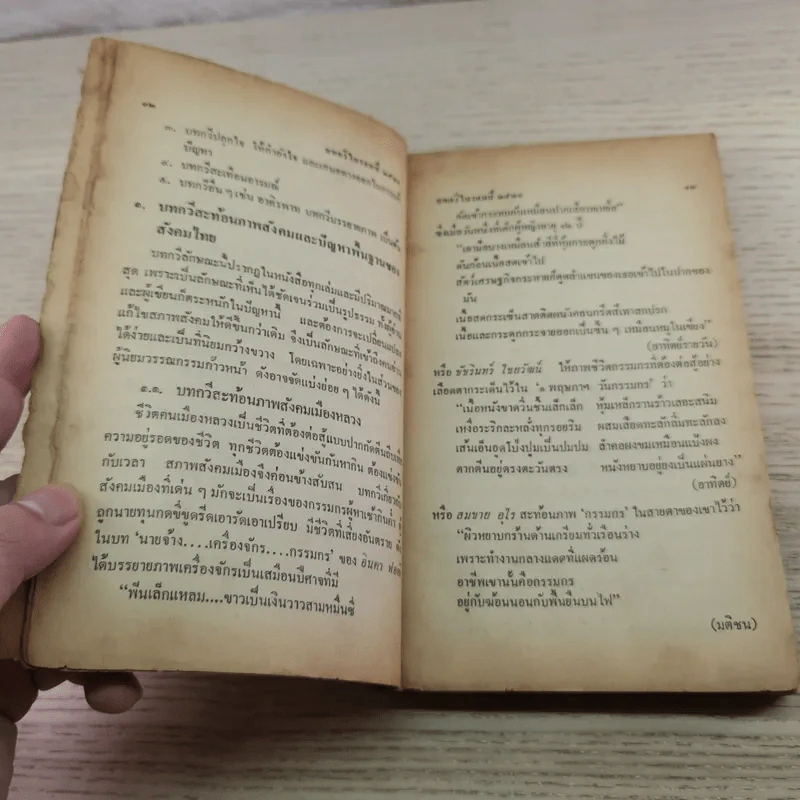 ๑๒
บทกวีในรอบปี ๒๕๒๑
๓. บทกวีปลุกใจ ให้กำลังใจ และเสนอทางออกในการแก้
ปัญหา
๔. บทกวีสะเทือนอารมณ์
๕. บทกวีอื่น ๆ เช่น อาศิรพาท บทกวีบรรยายภาพ เป็นต้น
๑. บทกวีสะท้อนภาพสังคมและปัญหาพื้นฐานของ
สังคมไทย
บทกวีลักษณะนี้ปรากฏในหนังสือทุกเล่มและมีปริมาณมากที่
สุด เพราะเป็นลักษณะที่เห็นได้ชัดเจนร่วมเป็นรูปธรรม ทั้งผู้อ่าน
และผู้เขียนก็ตระหนักในปัญหานี้ และต้องการจะเปลี่ยนแปลง
แก้ไขสภาพสังคมให้ดีขึ้นกว่าเดิม จึงเป็นลักษณะที่เข้าถึงคนอ่าน
ได้ง่ายและเป็นที่นิยมกว้างขวาง โดยเฉพาะอย่างยิ่งในส่วนของ
ผู้นิยมวรรณกรรมก้าวหน้า ดังอาจจัดแบ่งย่อย ๆ ได้ดังนี้
๑.๑. บทกวีสะท้อนภาพสังคมเมืองหลวง
ชีวิตคนเมืองหลวงเป็นชีวิตที่ต้องต่อสู้แบบปากกัดตีนถีบเพื่อ
ความอยู่รอดของชีวิต ทุกชีวิตต้องแข่งขันกันหากิน ต้องแข่งขัน
กับเวลา สภาพสังคมเมืองจึงค่อนข้างสับสน บทกวีเกี่ยวกับ
สังคมเมืองที่เด่น ๆ มักจะเป็นเรื่องของกรรมกรผู้หาเช้ากินค่ำ ผู้
ถูกนายทุนกดขี่ขูดรีดเอารัดเอาเปรียบ มีชีวิตที่เสี่ยงอันตราย
ในบท ‘นายจ้าง....เครื่องจักร....กรรมกร’ ของ อินคา
ได้บรรยายภาพเครื่องจักรเป็นเสมือนปีศาจที่มี
“ฟันเล็กแหลม....ขาวเป็นเงินวาวสามหมื่นซี่
บทกวีในรอบปี ๒๕๒๑
๑๓
ซึ่งเมื่อวันหนึ่งที่เด็กผู้หญิงอายุ ๑๒ ปี
“เธอมือบางเหมือนสำลีที่หุ้มกระดูกกิ่งไม้
ดันก้อนเนื้อสดเข้าไป
สัตว์เศรษฐกิจกระหายก็ดูดลำแขนของเธอเข้าไปในปากของ
มัน
เนื้อสดกระเซ็นสาดติดผนังคอนกรีตสีเทาสกปรก
เนื้อและกระดูกกระจายออกเป็นชิ้น ๆ เหมือนหมูในเขียง”
(อาทิตย์รายวัน)
หรือ ชัชรินทร์ ไชยวัฒน์ ให้ภาพชีวิตกรรมกรที่ต้องต่อสู้อย่าง
เลือดตากระเด็นไว้ใน ‘๑ พฤษภาฯ วันกรรมกร’ ว่า
“เนื้อหนังขาดวิ่นชิ้นเล็กเล็ก หุ้มเหล็กรานร้าวเสอะสนิม
เหงื่อระริกละหลั่งทุกรอยริม ผสมเลือดทะลักลิ้มทะลักลง
เส้นเอ็นอูดโป่งปูเป็นปมปม ลำคอผงขมเหมือนแป้งผง
ตากตีนอยู่ตรงตะวันตรง หนังหยาบอยู่ยงเป็นแผ่นยาง”
(อาทิตย์)
หรือ สมชาย อุไร สะท้อนภาพ ‘กรรมกร’ ในสายตาของเขาไว้ว่า
“ผิวหยาบกร้านด้านเกรียมทั่วเรือนร่าง
เพราะทำงานกลางแดดที่แผดร้อน
อาชีพเขานั้นคือกรรมกร
อยู่กับฆ้อนนอนกับฟืนยืนบนไฟ”
(มติชน)